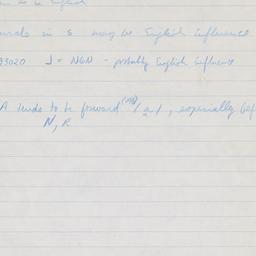 in s may be English influence
93020 J = NGN - probably English influence
A tends to be forward (AB) / a /, especially bef
N, R